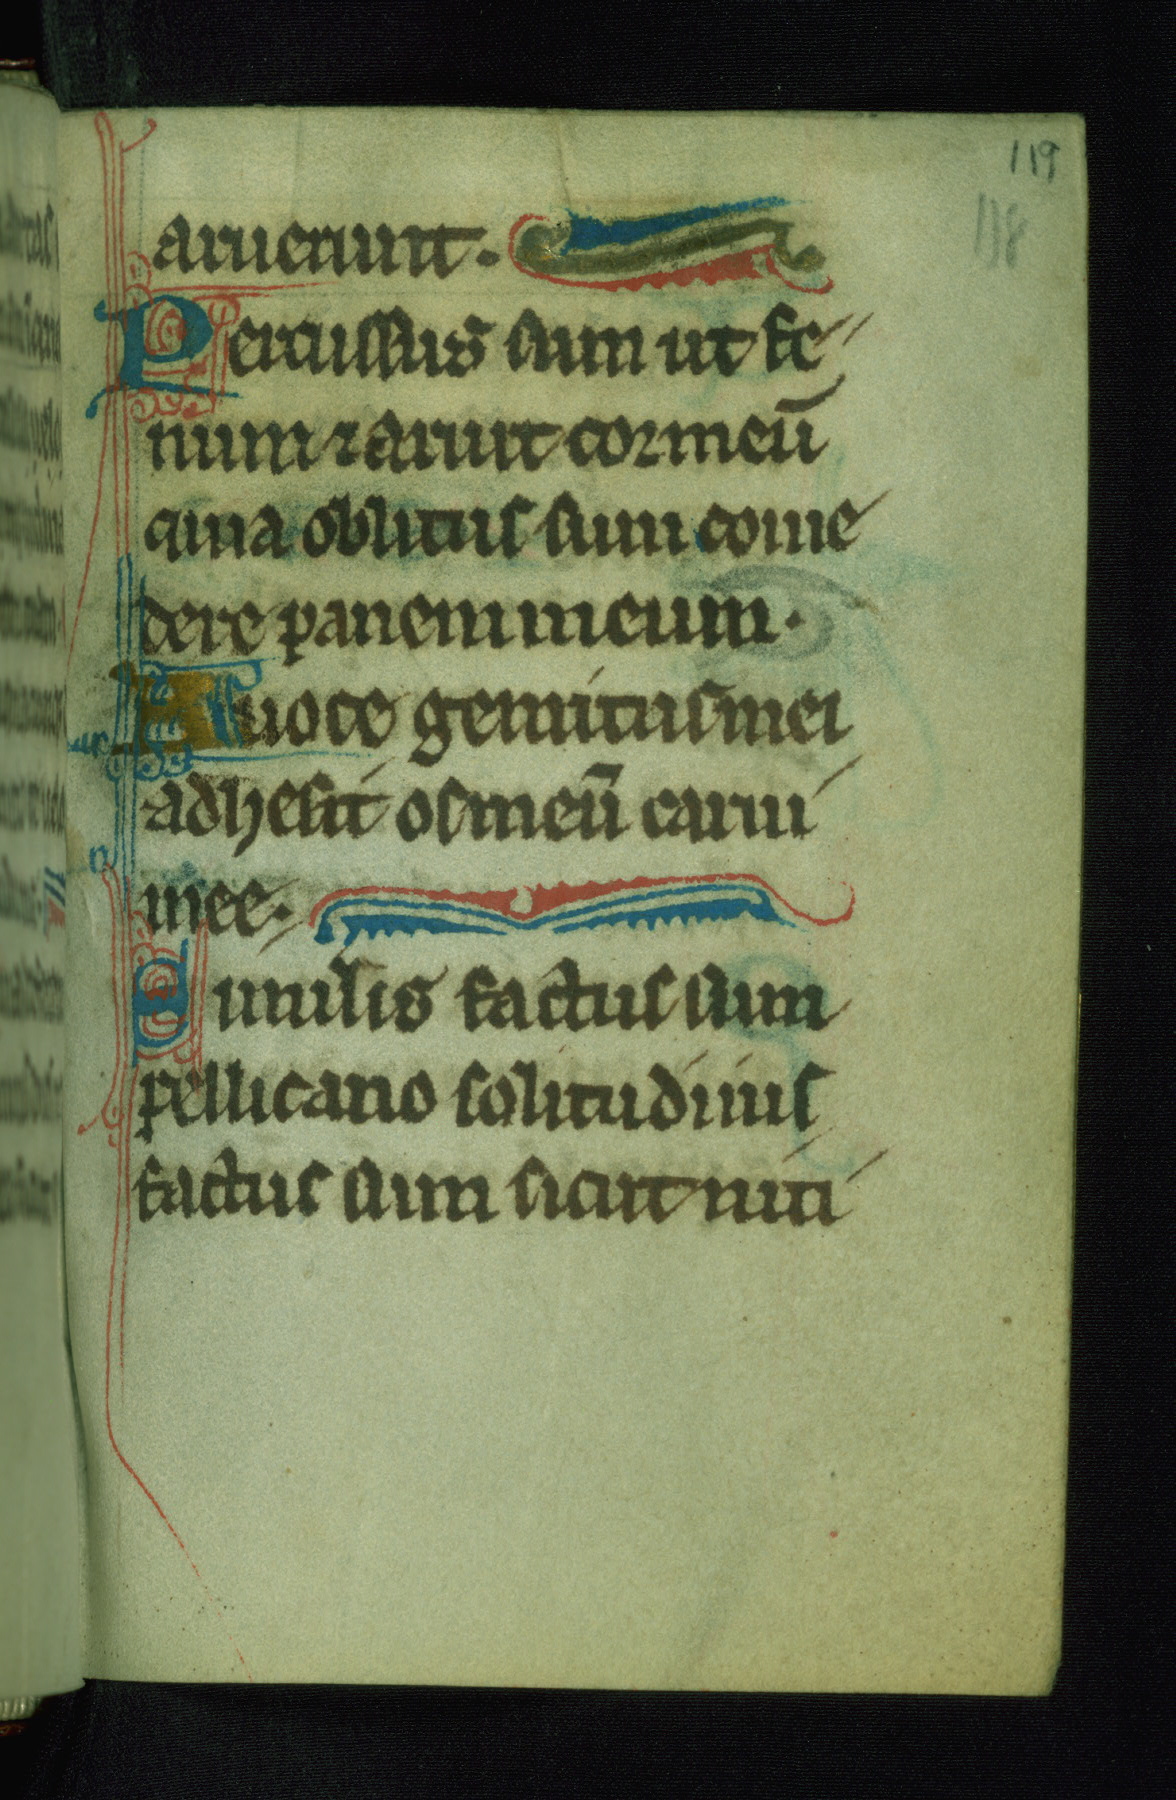 119
118
aruerunt.
Percussus sum ut fe
num ⁊ aruit cor meū
quia oblitus sum come
dere panem meum.
A uoce gemitus mei
adhesit os meū carni
mee.
Similis factus sum
pellicano solitudinis
factus sum sicut niti